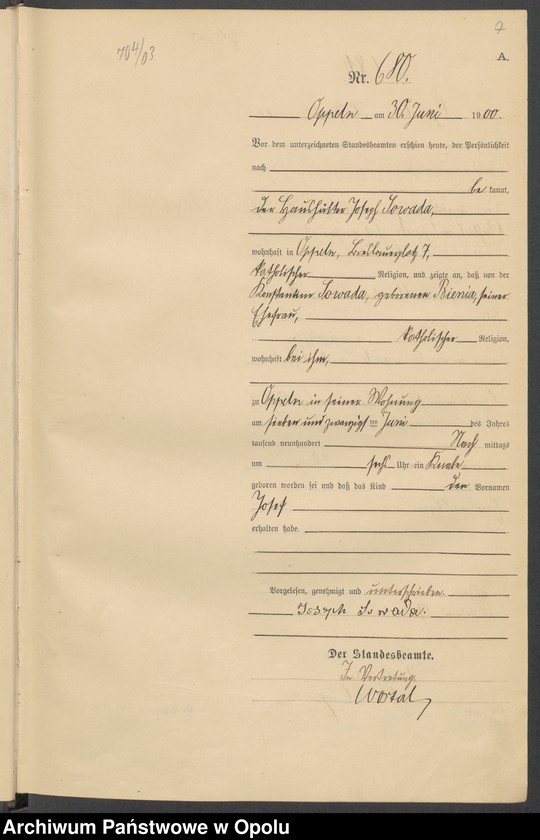 7
704/03
A.
Nr. 680.
Oppeln am 30. Juni 1900.
Vor dem unterzeichneten Standesbeamten erschien heute, der Persönlichkeit
nach
be kannt,
der Haushälter Joseph Sowada,
wohnhaft in Oppeln, Breslauerplatz 7,
katholischer Religion, und zeigte an, daß von der
Sowada, geborenen Bienia, seiner
Ehefrau,
katholischer Religion,
wohnhaft bei ihm,
zu Oppeln in seiner Wohnung
am sieben und zwanzigsten Juni des Jahres
tausend neunhundert Nach mittags
um sechs Uhr ein Knabe
geboren worden sei und daß das Kind den Vornamen
Josef
erhalten habe.
Vorgelesen, genehmigt und unterschrieben.
Joseph Sowada.
Der Standesbeamte.
In Vertretung.
Archiwum Państwowe w Opolu